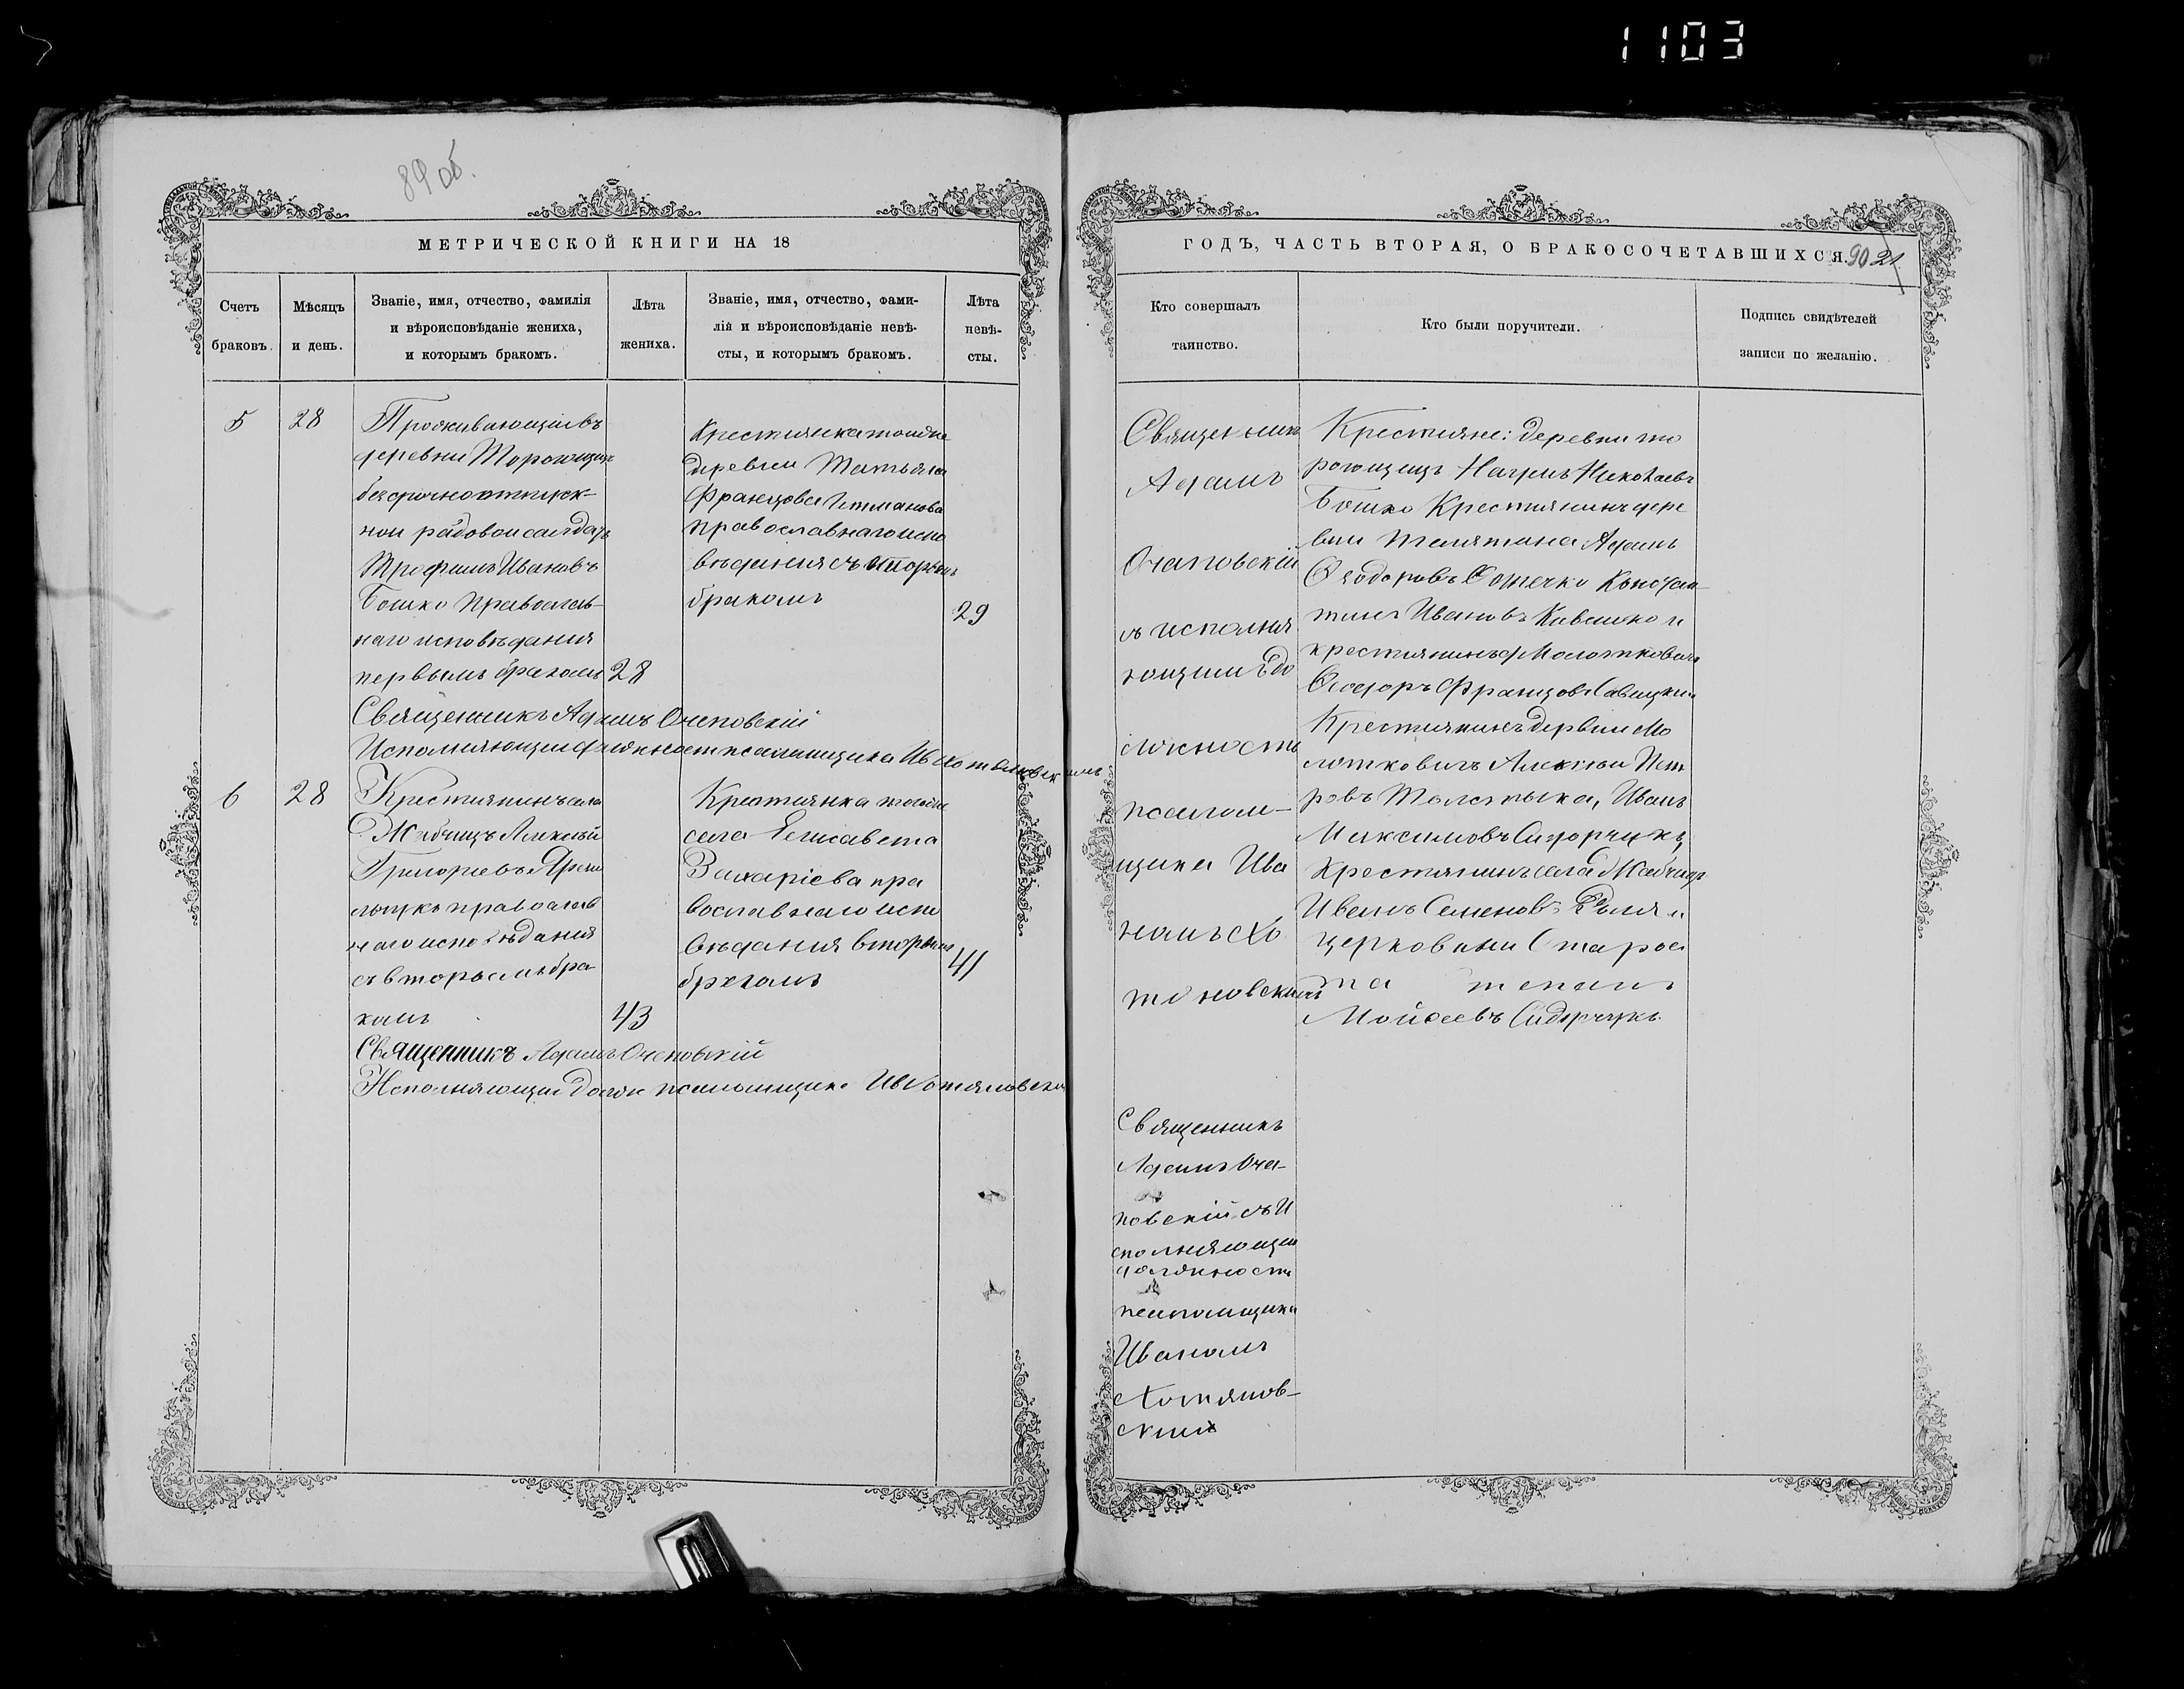 1103
89 об.
МЕТРИЧЕСКОЙ КНИГИ НА 18
Счетъ
браковъ.
Мѣсяцъ
и день.
Званіе, имя, отчество, фамилія
и вѣроисповѣданіе жениха,
и которымъ бракомъ.
Лѣта
жениха.
Званіе, имя, отчество, фами-
лія и вѣроисповѣданіе невѣ-
сты, и которымъ бракомъ.
Лѣта
невѣ-
сты.
5
28
Проживающій въ
деревни Торгощи
безсрочноотпуск-
ной рядовой салдатъ
Трофимъ Ивановъ
Бошко православ-
наго исповѣданія
первымъ бракомъ
28
Крестянка тойже
деревни Татьяна
Францова
православнаго испо
вѣданія съ вторымъ
бракомъ
29
Священникъ Адамъ Очаповскій
Исполняющій должност псаломщика Ив Хотяновскій
6
28
Крестянинъ села
Жабчицъ Алексѣй
Григорьевъ
православ
наго исповѣданія
съ вторымъ бра
комъ
43
Крестянка тогоже
села Елисавета
Захаріева пра
вославнаго испо
вѣданія вторымъ
бракомъ
41
Священникъ Адамъ Очаповскій
Исполняющій долж псаломщика Ив Хотяновскій
ГОДЪ, ЧАСТЬ ВТОРАЯ, О БРАКОСОЧЕТАВШИХСЯ.
90 21
Кто совершалъ
таинство.
Кто были поручители.
Подпись свидѣтелей
записи по желанію.
Священникъ
Адамъ
Очаповскій
съ исполня
ющимъ до
лжность
псалом-
щика Ива
номъ Хо
тяновскимъ
Крестяне: деревни То
Николаевъ
Бошко Крестянинъ дере
вни Адамъ
Ѳеодоровъ Констан-
тинъ Ивановъ и
крестянинъ Молотковичъ
Ѳеодоръ Францовъ Савицкій
Крестянинъ дервни Мо
лотковичъ Алексѣй Пет
ровъ Иванъ
Максимовъ Сидорчукъ,
Крестянинъ села Жабчицъ
Иванъ Семеновъ и
церковный Старос
та тепанъ
Мойсеевъ Сидорчукъ.
Священникъ
Адамъ Оча-
повскій съ И
сполняющи
должности
псаломщика
Иваномъ
Хотянов-
ским